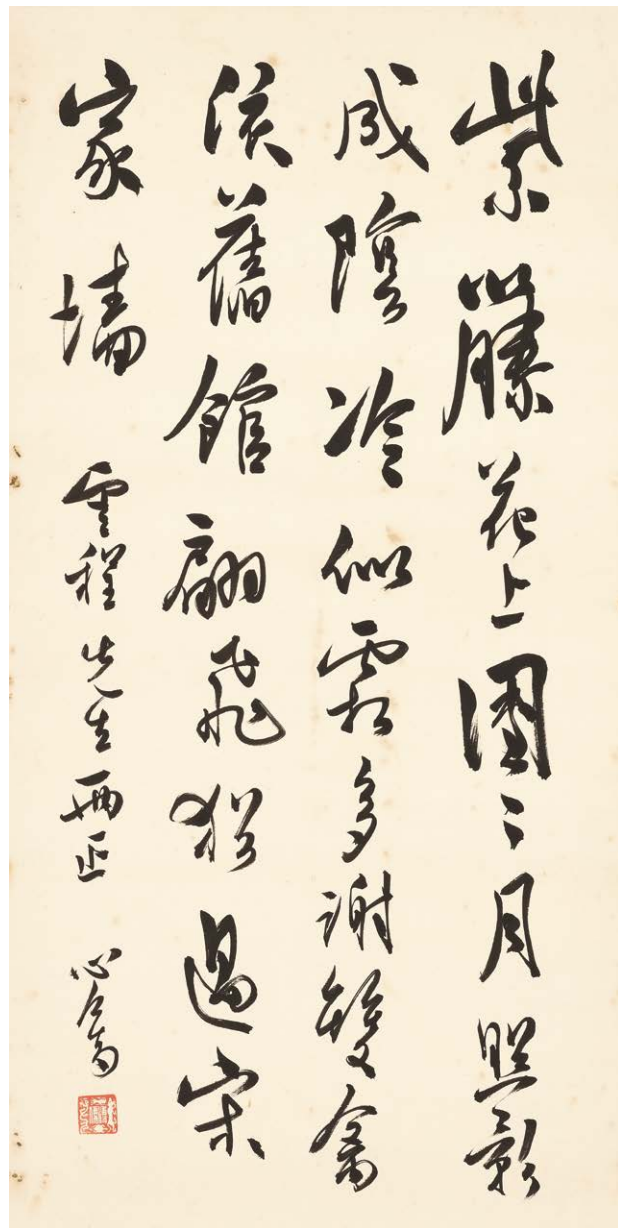 紫藤花上團〻月照影
成陰冷似霜多謝雙禽
舊館翩飛猶過宋
家墻 雲程先生兩正 心畬